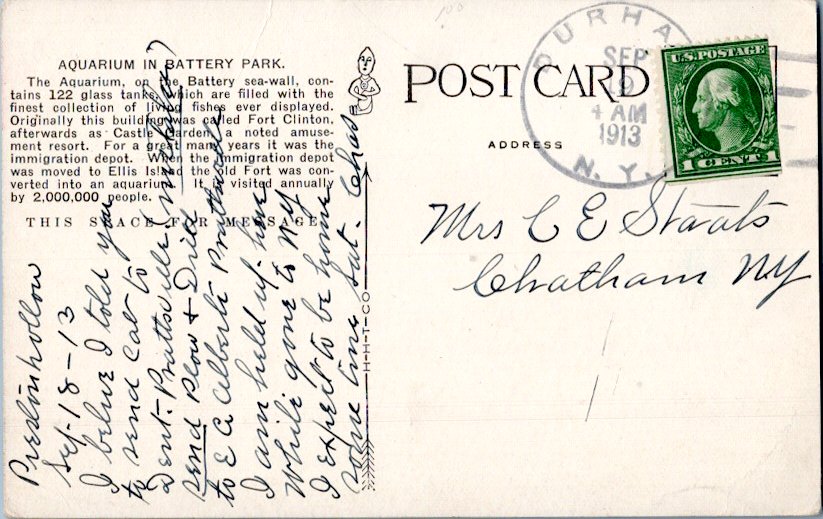 AQUARIUM IN BATTERY PARK.
The Aquarium, on the Battery sea-wall, con-
tains 122 glass tanks, which are filled with the
finest collection of living fishes ever displayed.
Originally this building was called Fort Clinton,
afterwards as Castle Garden, a noted amuse-
ment resort. For a great many years it was the
immigration depot. When the immigration depot
was moved to Ellis Island the old Fort was con-
verted into an aquarium. It is visited annually
by 2,000,000 people.
THIS SPACE FOR MESSAGE
POST CARD
ADDRESS
DURHAM
SEP
19
4 AM
1913
N. Y.
U.S. POSTAGE
1 CENT 1
Mrs C E Staats
Chatham NY
H-H-T-CO
Prestonhollow
Sep. 18-13
I beleve I told you
to send Cat to
Dent. Prattsville.
Send Plow + Drill
to E C Albert Prattsville
I am held up here
While gone to NY
I expect to be home
some time Sat. Chas